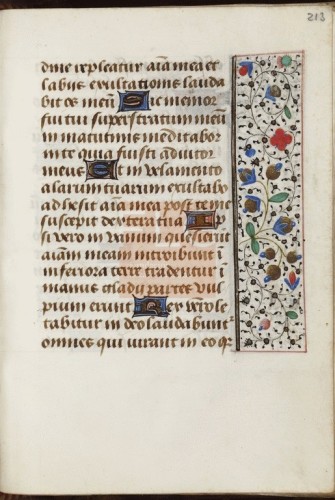 213
dine repleatur aīa mea et
labiis exultationis lauda
bit os meū Sic memor
fui tui super stratum meū
in matutinis meditabor
in te quia fuisti adiutor
meus Et in velamento
alarum tuarum exultabo
adhesit aīa mea post te me
suscepit dextera tua Ip
si vero in vanum quesierūt
aīam meam introibunt ī
inferiora terre tradentur ī
manus gladij partes vul
pium erunt Rex vero le
tabitur in deo laudabunt̄
omnes qui iurant in eo qꝛ